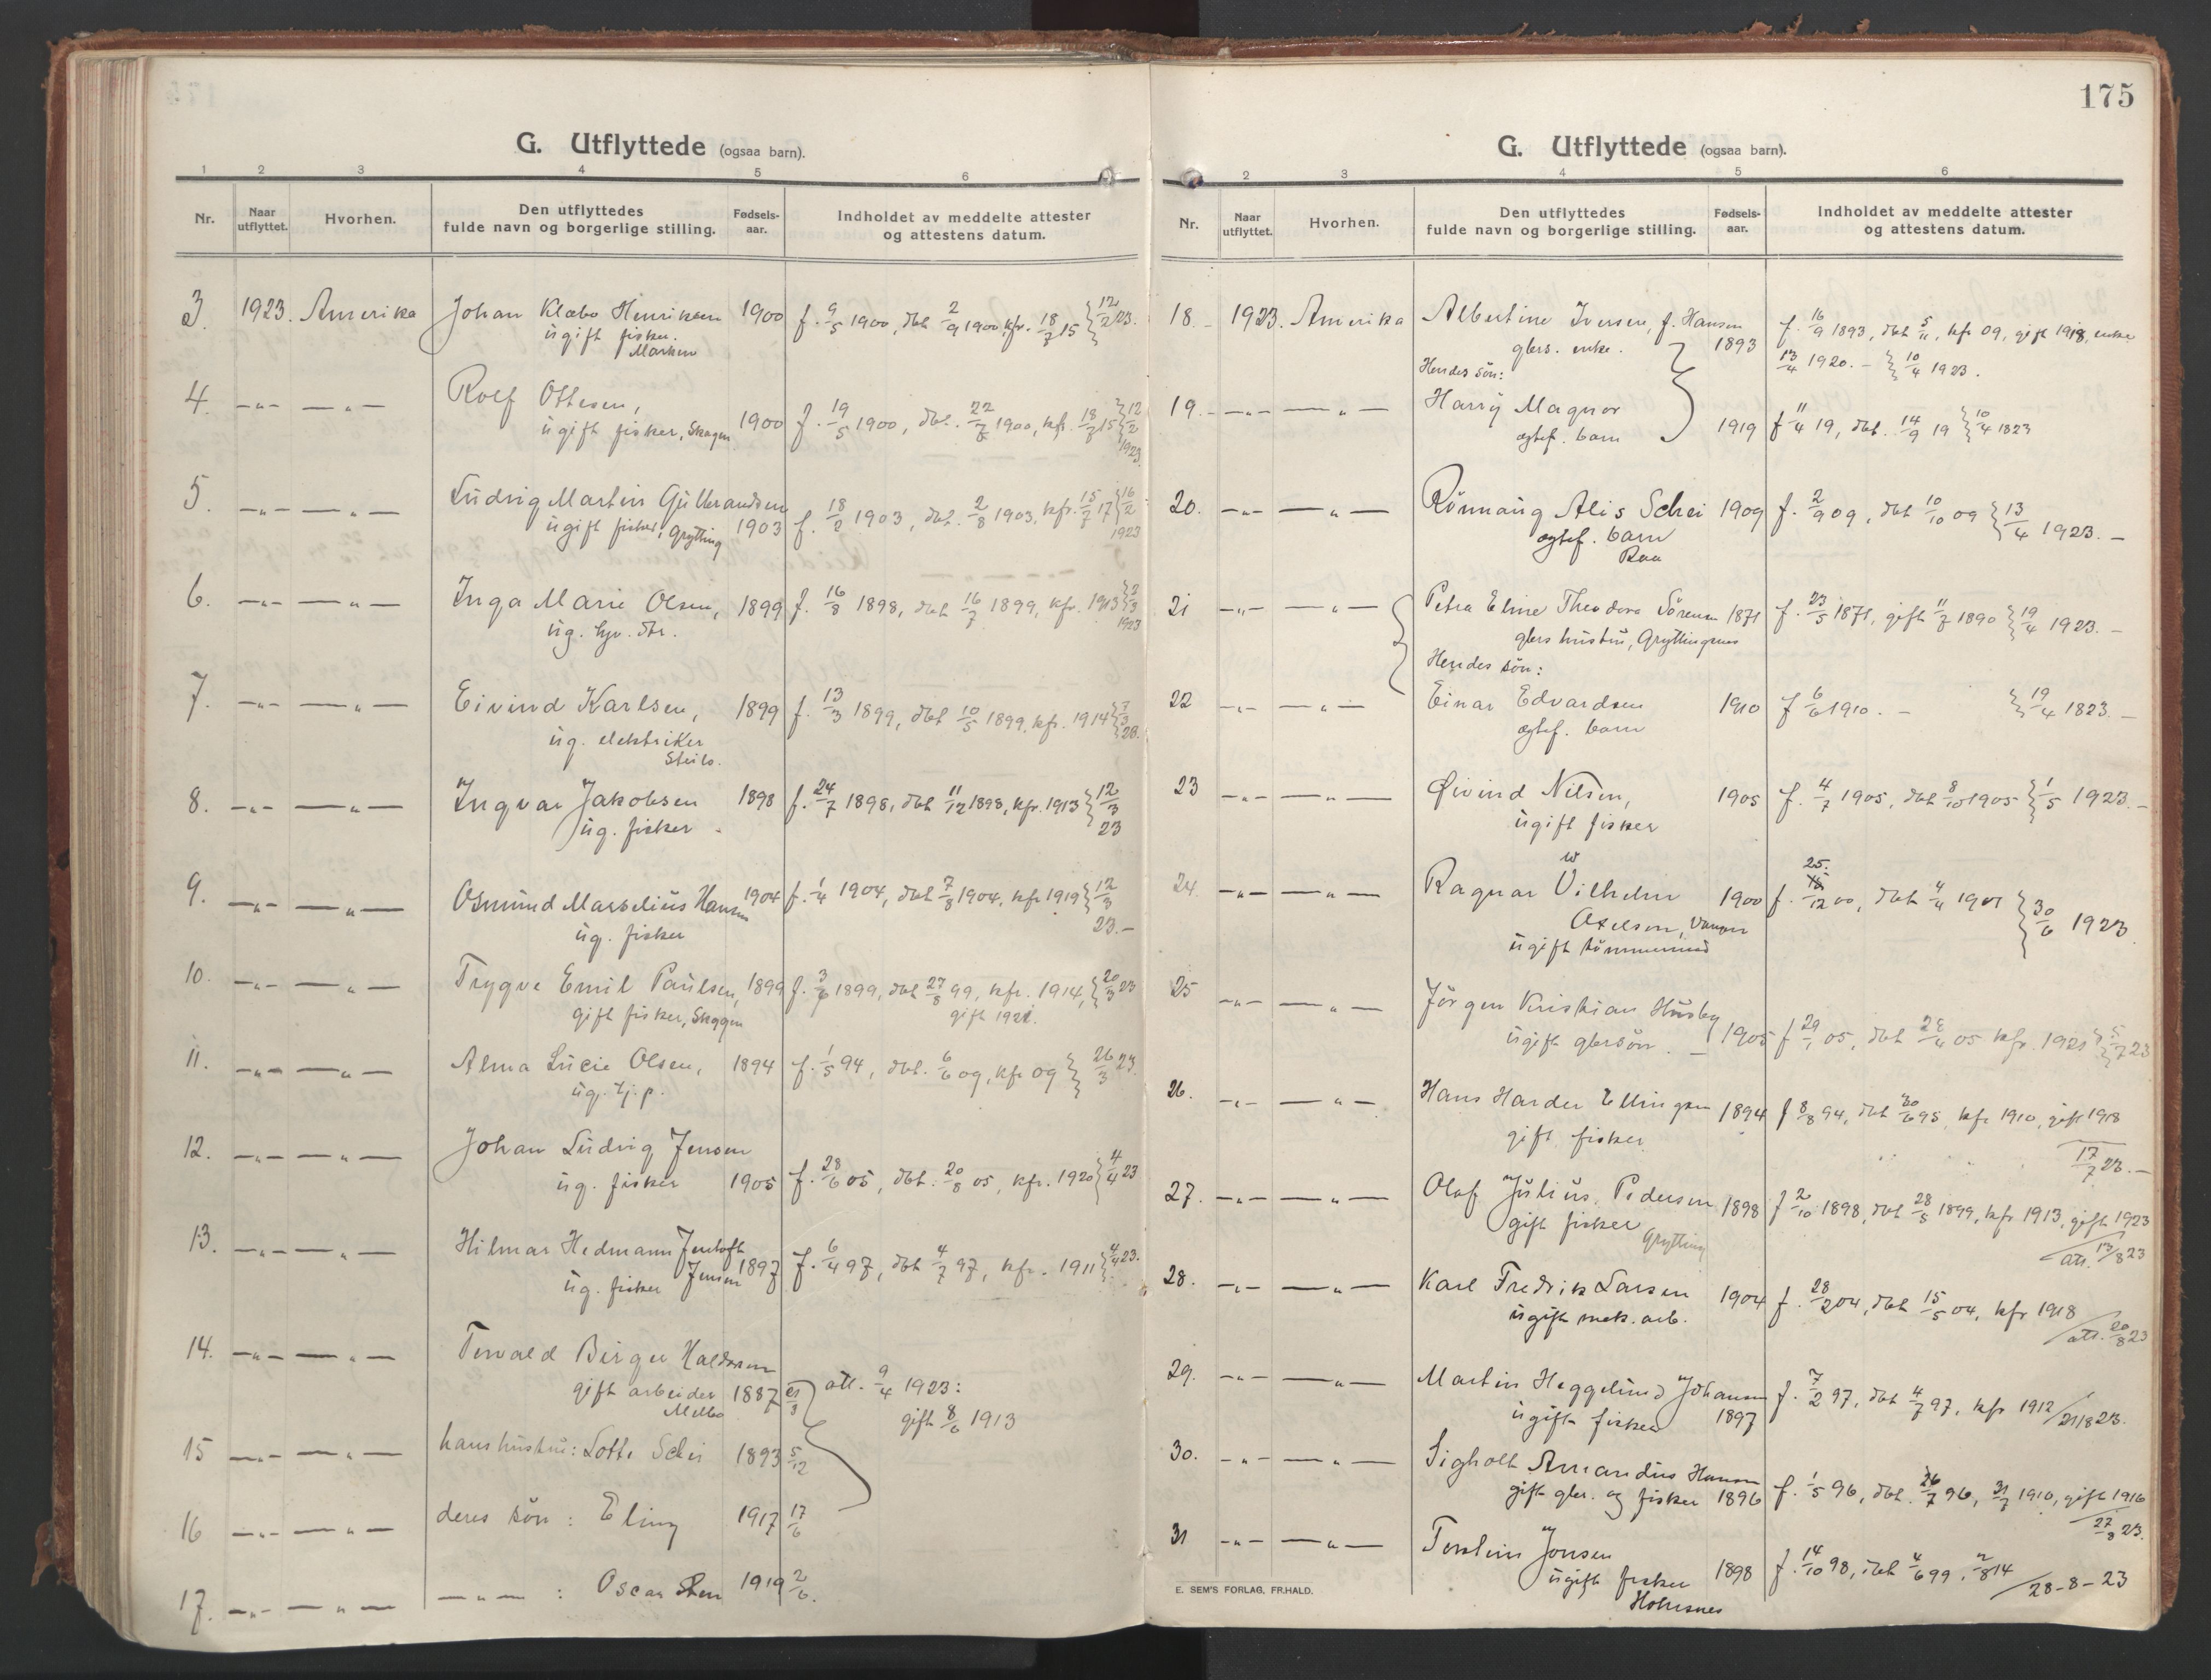 G. Utflyttede (ogsaa barn).
1 2 3 4 5 6
Nr. Naar utflyttet. Hvorhen. Den utflyttedes fulde navn og borgerlige stilling. Fødsels-aar. Indholdet av meddelte attester og attestens datum.
3. 1923. Amerika Johan Klæbo Henriksen 1900 f. 9/5 1900, dbt 2/9 1900, kfr. 18/7 15 } 12/2 23.
ugift fisker.
Marken
4. -"- — " — Rolf Ottesen,
ugift fisker, Skagen 1900 f. 19/5 1900, dbt. 22/7 1900, kfr. 18/7 15 } 12/2 1923
5. -"- — " — Ludvig Martin Gulbrandsen
ugift fisker, Grytting 1903 f. 18/2 1903, dbt. 2/8 1903, kfr. 15/7 17 } 16/2 1923
6. -"- — " — Inga Marie Olsen, 1899 f. 16/8 1898, dbt 16/7 1899, kfr. 1913 } 2/3 1923
ug. tjv. dtr.
7. -"- — " — Eivind Karlsen, 1899 f. 13/3 1899, dbt 10/5 1899, kfr. 1914 } 7/3 23.
ug. elektriker
Steilo.
8. -"- — " — Ingvar Jakobsen 1898 f. 24/7 1898, dbt 11/12 1898, kfr. 1913 } 12/3 23
ug. fisker
9. -"- — " — Osmund Marselius Hansen 1904 f. 1/4 1904, dbt 7/8 1904, kfr 1919 } 12/3 23.-
ug. fisker
10. -"- — " — Trygve Emil Paulsen, 1899 f. 3/6 1899, dbt 27/8 99, kfr. 1914, } 20/3 23
gift fisker, Skagen gift 1921.
11. -"- — " — Alma Lucie Olsen, 1894 f. 1/5 94, dbt. 6/6 09, kfr 09 } 26/3 23.
ug. tj. p.
12. -"- — " — Johan Ludvig Jensen
ug. fisker 1905 f. 28/6 05, dbt. 20/8 05, kfr. 1920 } 4/4 23
13. -"- — " — Hilmar Hedmann Jentoft
ug. fisker Jensen 1897 f. 6/4 97, dbt 4/7 97, kfr. 1911 } 4/4 23.
14. -"- — " — Torvald Birger Haldorsen
gift arbeider 1887 att. 9/4 1923:
Melbo gift 8/6 1913
15 -"- — " — hans hustru: Lotte Schei 1893 5/12
16 -"- — " — deres sön: Eling 1917 17/6
17. -"- — " — — " — : Oscar Sten 1919 2/6.
175
G. Utflyttede (ogsaa barn).
2 3 4 5 6
Nr. Naar utflyttet. Hvorhen. Den utflyttedes fulde navn og borgerlige stilling. Fødsels-aar. Indholdet av meddelte attester og attestens datum.
18. 1923. Amerika Albertine Iversen, f. Hansen
gbrs. enke. 1893 f. 16/9 1893, dbt 5/11, kfr 09, gift 1918, enke
13/4 1920. - } 10/4 1923.
Hendes sön:
19. -"- — " — Harry Magnor
ægtef. barn 1919 f 11/4 19, dbt. 14/9 19 } 10/4 1823
20. -"- — " — Rönnaug Alis Schei 1909 f. 2/9 09, dbt 10/10 09 } 13/4 1923.-
ægtef. barn
Raa
21 -"- — " — Petra Eline Theodora Sörensen 1871 f. 23/5 1871, gift 11/7 1890 } 19/4 1923.-
gbrs hustru,
Hendes sön:
22 -"- — " — Einar Edvardsen 1910 f 6/6 1910. - } 19/4 1823.-
ægtef. barn
23 -"- — " — Øivind Nilsen, 1905 f. 4/7 1905, dbt 8/10 1905 } 1/5 1923.-
ugift fisker
24. -"- — " — Ragnar Vilhelm 1900 f. 25./12 00, dbt 4/4 1901 } 30/6 1923
w
Axelson,
ugift tömmermand
25 -"- — " — Jörgen Kristian Husby
ugift gbrsön. - 1905 f 29/1 05, dbt 24/4 05 kfr. 1921 } 5/7 23
26. -"- — " — Hans Harder Ellingsen 1894 f 8/8 94, dbt 30/6 95, kfr 1910, gift 1918
gift fisker 17/7 23.-
27. -"- — " — Olaf Julius Pedersen 1898 f 2/10 1898, dbt 28/5 1899, kfr 1913, gift 1923
gift fisker Grytting att. 13/8 23
28. -"- — " — Karl Fredrik Larsen 1904 f. 28/2 04, dbt 15/5 04, kfr 1918
ugift mek. arb. att. 20/8 23
29. -"- — " — Martin Heggelund Johansen f. 7/2 97, dbt 4/7 97, kfr 1912
ugift fisker 1897 21/8 23.
30. -"- — " — Sigholt Amandus Hansen
gift gbr. og fisker 1896 f. 1/5 96, dbt. 26/7 96, 31/7 1910, gift 1916
27/8 23.
31 -"- — " — Torstein Jonsen
ugift fisker 1898 f. 14/10 98, dbt 4/6 99, 2/8 14
28-8-23
E. SEM'S FORLAG, FR.HALD.